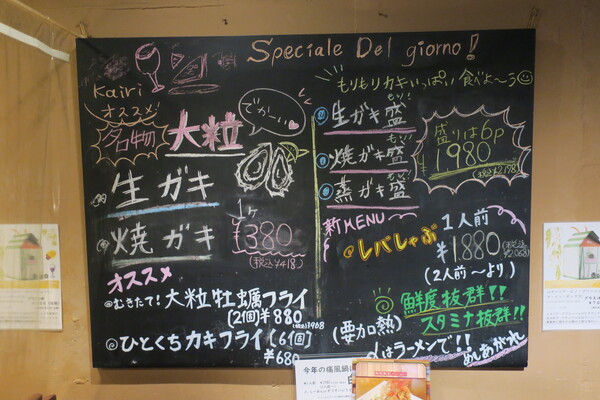 Speciale Del giorno!
Kairi
オススメ!
名物
大粒
でかーい
生ガキ
焼ガキ
1ヶ
¥380
(税込¥418)
オススメ
むきたて!大粒牡蠣フライ
[2個]¥880
(税込)¥968
ひとくちカキフライ[6個]
¥680
(要加熱)
もりもりカキいっぱい食べよ〜う
生ガキ盛
もり!
焼ガキ盛
もり!
蒸ガキ盛
もり!
盛りは6p
¥1980
(税込¥2178)
新MENU
レバしゃぶ
1人前
¥1.880
(税込¥2,068)
(2人前〜より)
鮮度抜群!!
スタミナ抜群!!
〆はラーメンで!!
めしあがれ
今年の痛風鍋は